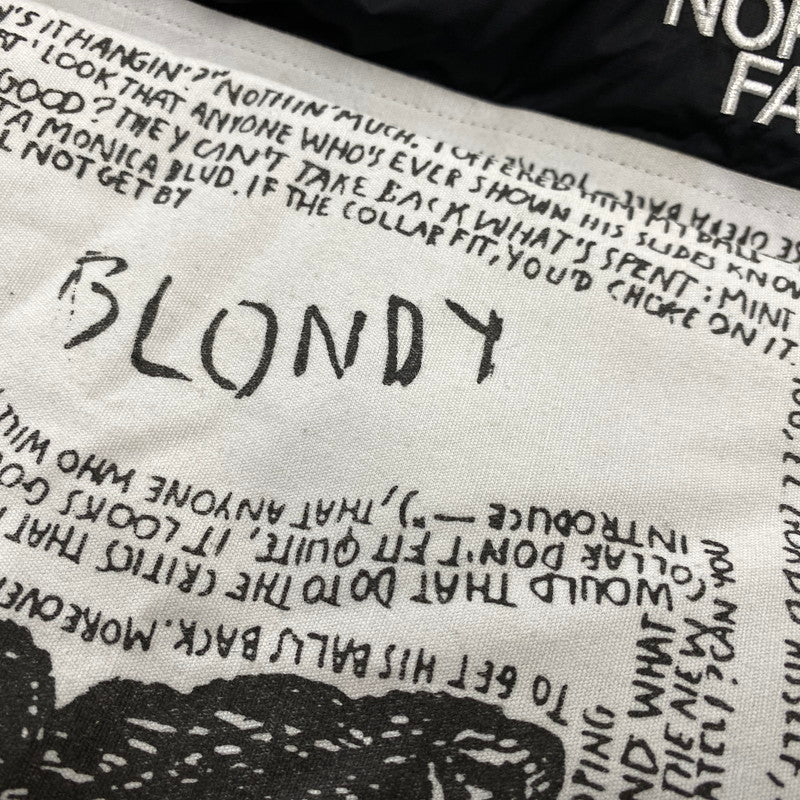 NOR
FA
N'S IT HANGIN'?" NOTHIN' MUCH. I OFFERED
AT' LOOK THAT ANYONE WHO'S EVER SHOWN HIS SLIDES KNOW
GOOD? THEY CAN'T TAKE BACK WHAT'S SPENT: MINT
TA MONICA BLVD. IF THE COLLAR FIT, YOU'D CHOKE ON IT.
L NOT GET BY
BLONDY
TO GET HIS BALLS BACK. MOREOVER
WOULD THAT DO TO THE CRITICS THAT
COLLAR DON'T FIT QUITE, IT LOOKS GOO
INTRODUCE —"), THAT ANYONE WHO WILL
PING
ND WHAT
THE NEW
ATELY? CAN YOU
HISSELF,